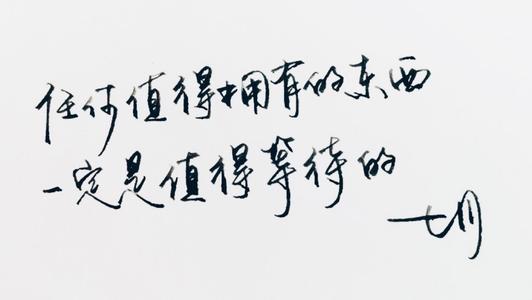 任何值得拥有的东西
一定是值得等待的
七月